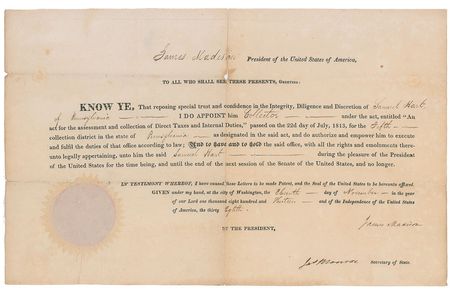 James Madison President of the United States of America,
TO ALL WHO SHALL SEE THESE PRESENTS, GREETING:
KNOW YE, That reposing special trust and confidence in the Integrity, Diligence and Discretion of Samuel Hart
of Pennsylvania — I DO APPOINT him Collector — under the act, entitled "An
act for the assessment and collection of Direct Taxes and Internal Duties," passed on the 22d day of July, 1813, for the Fifth —
collection district in the state of Pennsylvania — as designated in the said act, and do authorize and empower him to execute
and fulfil the duties of that office according to law; And to have and to hold the said office, with all the rights and emoluments thereunto legally appertaining, unto him the said Samuel Hart — during the pleasure of the President
of the United States for the time being, and until the end of the next session of the Senate of the United States, and no longer.
IN TESTIMONY WHEREOF, I have caused these Letters to be made Patent, and the Seal of the United States to be hereunto affixed.
GIVEN under my hand, at the city of Washington, the Eleventh — day of November — in the year
of our Lord one thousand eight hundred and thirteen — and of the Independence of the United States
of America, the thirty Eighth.
James Madison
BY THE PRESIDENT,
Jas Monroe Secretary of State.